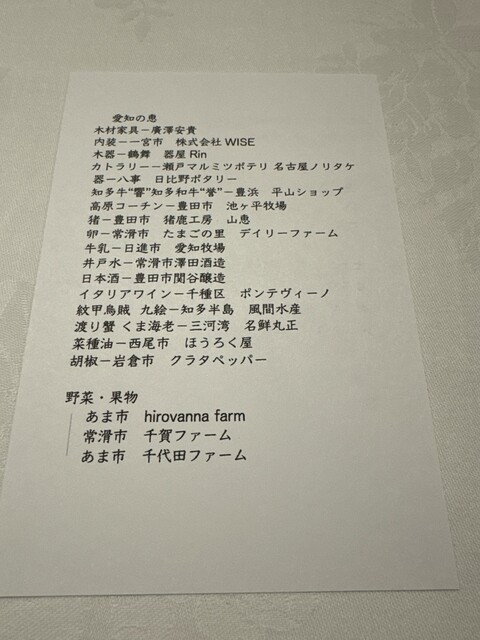 愛知の恵
木材家具ー廣澤安貴
内装ー一宮市　株式会社 WISE
木器ー鶴舞　器屋 Rin
カトラリーー瀬戸マルミツポテリ 名古屋ノリタケ
器ー八事　日比野ポタリー
知多牛“響”知多和牛“誉”ー豊浜　平山ショップ
高原コーチンー豊田市　池ヶ平牧場
猪ー豊田市　猪鹿工房　山恵
卵ー常滑市　たまごの里　デイリーファーム
牛乳ー日進市　愛知牧場
井戸水ー常滑市澤田酒造
日本酒ー豊田市関谷醸造
イタリアワインー千種区　ポンテヴィーノ
紋甲烏賊　九絵ー知多半島　風間水産
渡り蟹 くま海老ー三河湾　名鮮丸正
菜種油ー西尾市　ほうろく屋
胡椒ー岩倉市　クラタペッパー
野菜・果物
あま市　hirovanna farm
常滑市　千賀ファーム
あま市　千代田ファーム